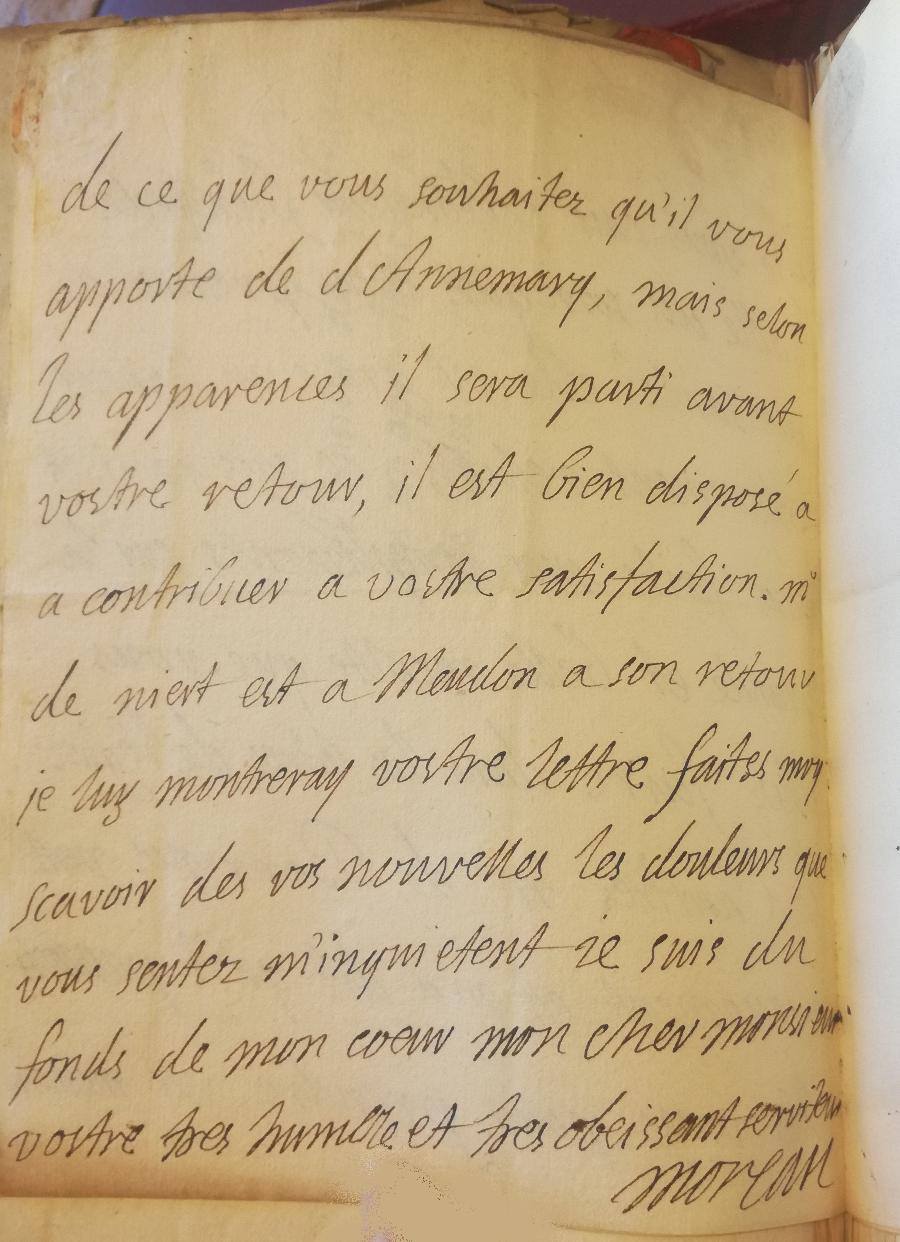 de ce que vous souhaitez qu'il vous
apporte de d Annemarq, mais selon
les apparences il sera parti avant
vostre retour, il est bien disposé a
a contribuer a vostre satisfaction. mr
de niert est a Meudon a son retour
je luy montreray vostre lettre faites moy
scavoir des vos nouvelles les douleurs que
vous sentez m'inquietent je suis du
fonds de mon coeur mon cher monsieur
vostre tres humble et tres obeissant serviteur
moreau